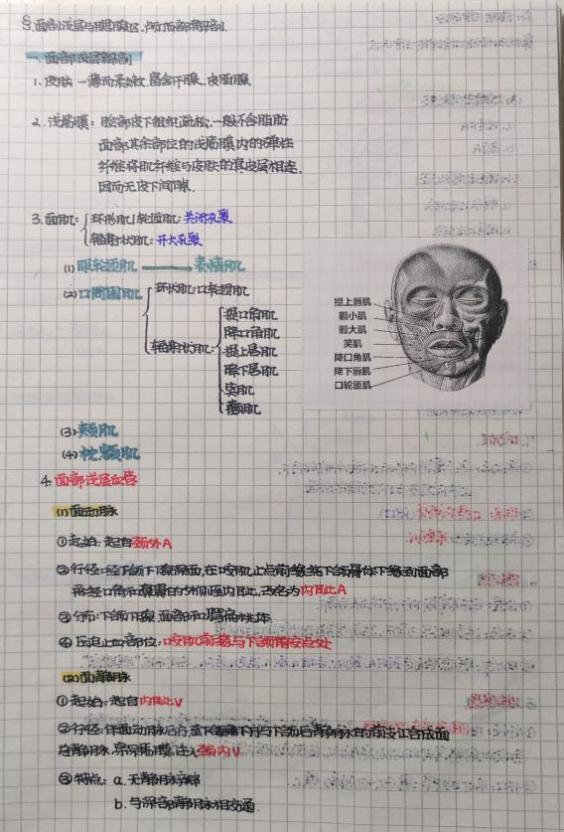 §. 面部浅层与腮腺区
一. 面部浅层解剖
1. 皮肤 — 薄而柔软, 富含汗腺、皮脂腺
2. 浅筋膜: 脸部皮下组织疏松, 一般不含脂肪
面部其余部位的浅筋膜内的弹性
纤维将肌纤维与皮肤的真皮层相连,
因而无皮下间隙.
3. 面肌: 环形肌/轮匝肌: 关闭孔裂
辐射状肌: 开大孔裂
(1) 眼轮匝肌 —— 表情肌
(2) 口周围肌 环状肌: 口轮匝肌
辐射状肌: 提口角肌
降口角肌
提上唇肌
降下唇肌
笑肌
提上唇肌
颧小肌
颧大肌
笑肌
降口角肌
降下唇肌
口轮匝肌
(3) 颊肌
(4) 枕额肌
4. 面部浅层血管
(1) 面动脉
① 起始: 起自颈外A
② 行径: 经下颌下腺深面, 在咬肌止点前缘绕下颌骨体下缘到面部
再经口角和鼻翼的外侧至内眦, 改名为内眦A
③ 分布: 下颌下腺、面部和腭扁桃体.
④ 压迫止血部位: 咬肌前缘与下颌骨交点处
(2) 面静脉
① 起始: 起自内眦V
② 行径: 伴面动脉后方至下颌角下方与下颌后静脉的前支汇合成面
总静脉, 注入颈内V.
③ 特点: a. 无静脉瓣
b. 与深部静脉相交通.